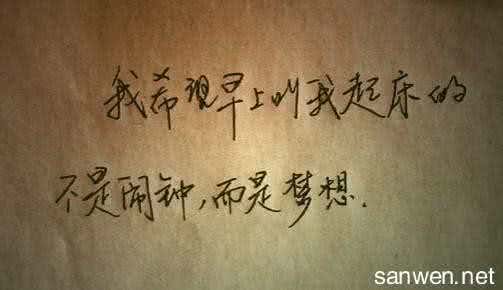 我希望早上叫我起床的
不是闹钟,而是梦想.
sanwen.net